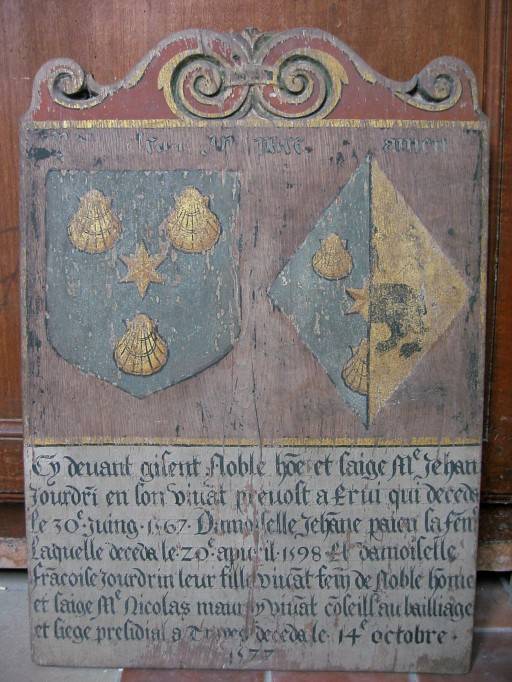 Cy devant gisent Noble hõe et saige Mᵉ Jehan
Jourdri en son vivāt prevost a Ervi qui deceda
le 30ᵉ Juing 1567. Damoiselle Jehāne paien sa fem̄e
Laquelle deceda le 20ᵉ apvril 1598 Et damoiselle
Frācoise Jourdrin leur fille vivāt fem̄ de Noble home
et saige Mᵉ Nicolas mauroy vivāt cōseill' au bailliage
et siege presidial a Troyes deceda le 14ᵉ octobre
1577